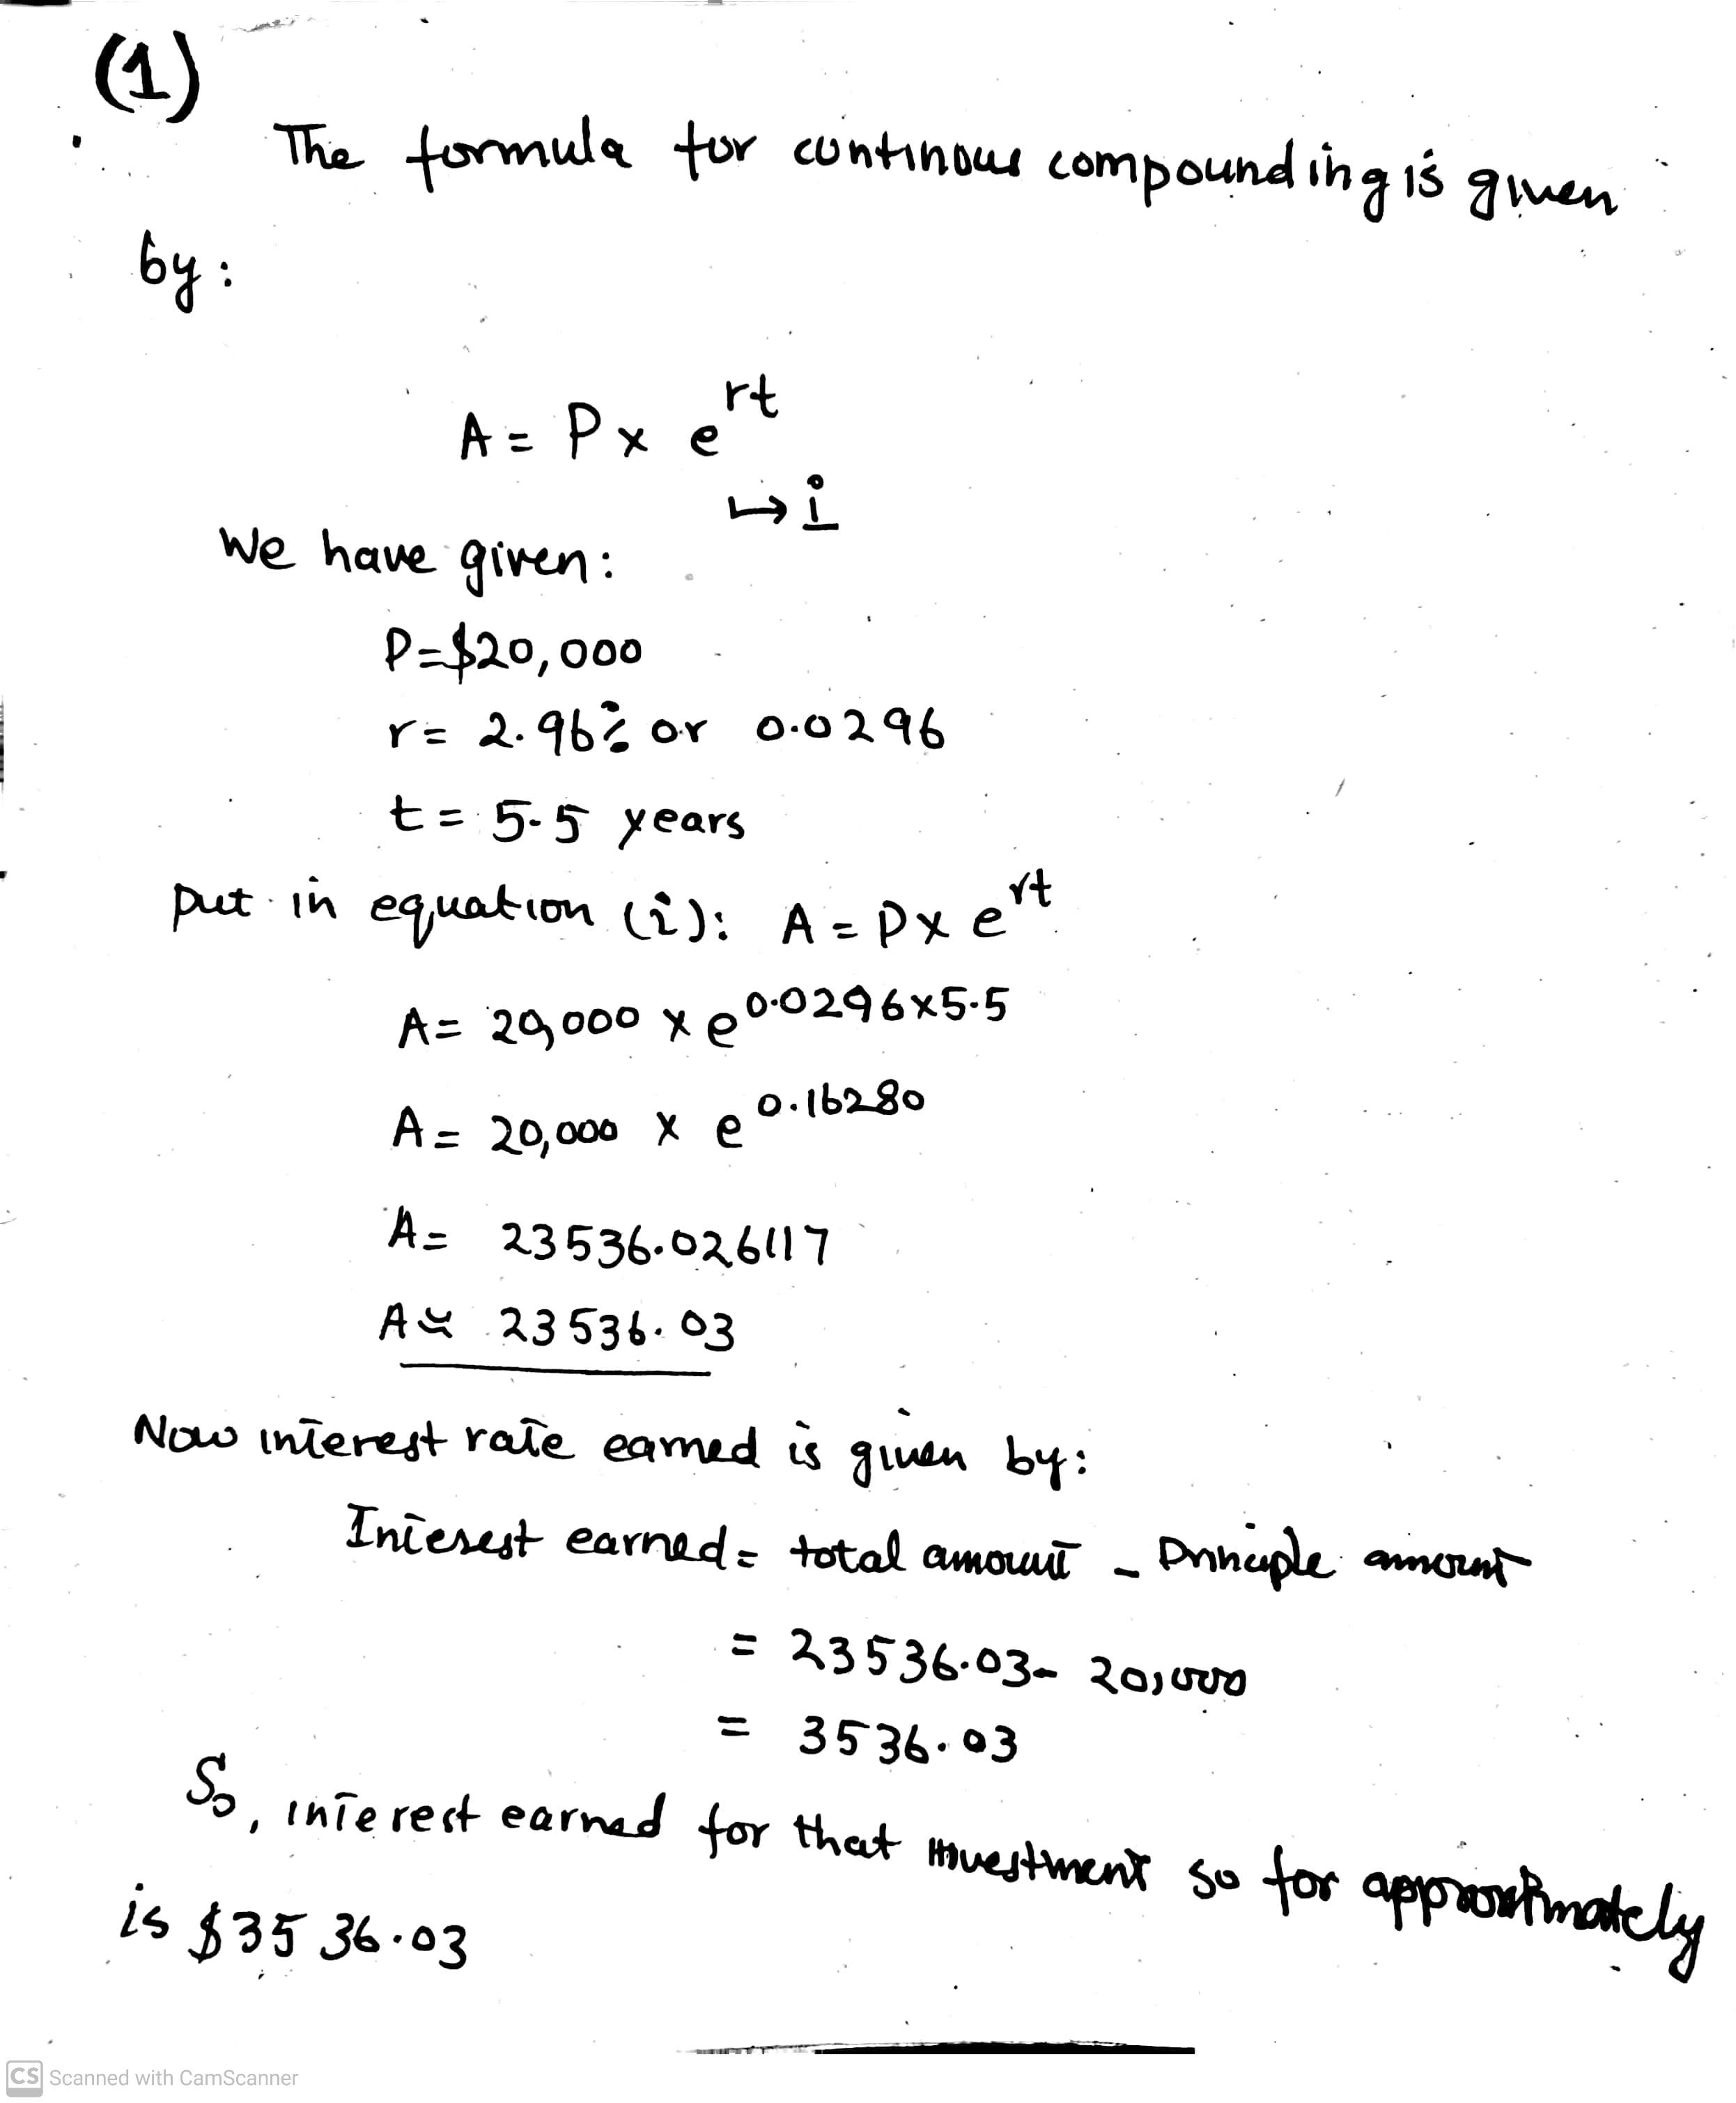 (1)
The formula for continous compounding is given
by:
A = P x e^rt
↳ i
We have given:
P=$20,000
r= 2.96% or 0.0296
t= 5.5 years
put in equation (i): A = P x e^rt
A= 20,000 x e^0.0296x5.5
A= 20,000 x e^0.16280
A= 23536.026117
A ≃ 23536.03
Now interest rate earned is given by:
Interest earned= total amount - Principle amount
= 23536.03- 20,000
= 3536.03
So, interest earned for that investment so for approximately
is $3536.03
CS Scanned with CamScanner